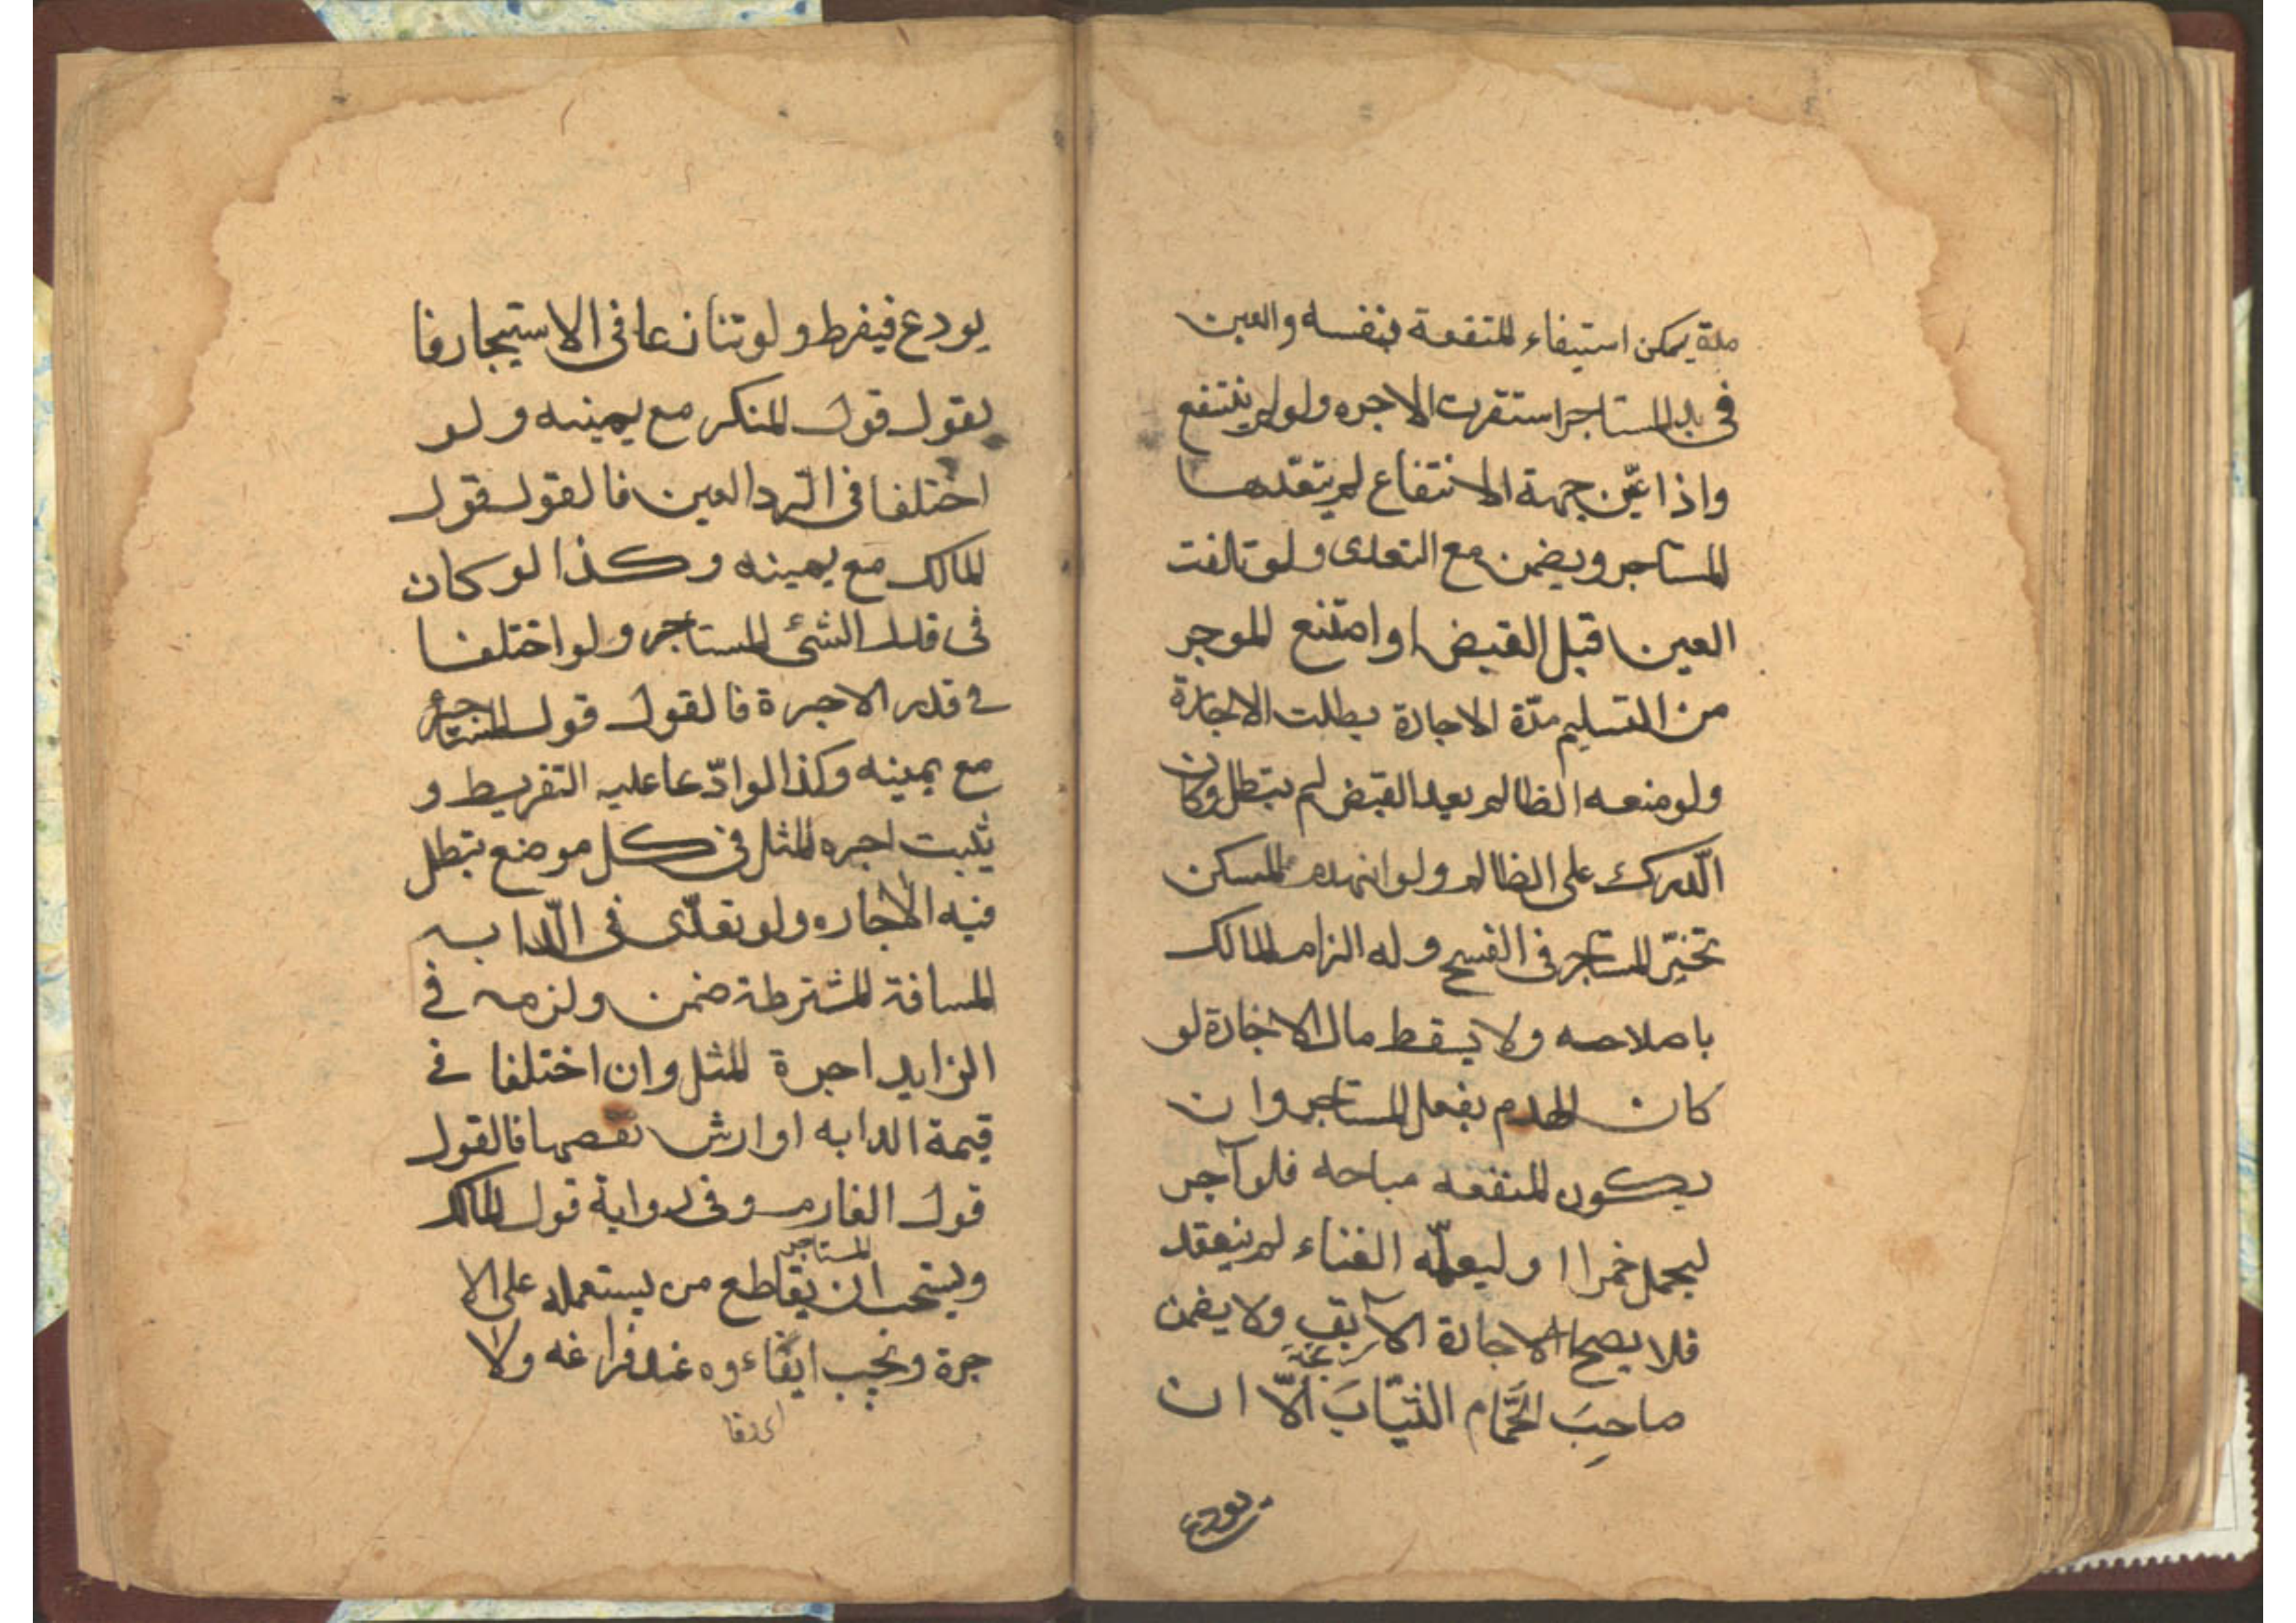 مدة يمكن استيفاء المنفعة بنفسه والعين
فى يد المستاجر استقرت الاجره ولو لم ينتفع
واذا عيّن جهة الانتفاع لم يتعدّها
المستاجر ويضمن مع التعدى ولو تالفت
العين قبل القبض او امتنع الموجر
من التسليم مدّة الاجارة بطلت الاجارة
ولو منعه الظالم بعد القبض لم يبطل وكان
الدّرك على الظالم ولو انهدم المسكن
تخيّر المستاجر فى الفسخ وله الزام المالك
باصلاحه ولا يسقط مال الاجارة لو
كان الهدم بفعل المستاجر وان
يكون المنفعه مباحه فلو آجر
ليحمل خمرا او ليعلّمه الغناء لم ينعقد
فلا يصح الاجارة الآبق ولا يضمن
صاحبَ الحَّمام الثيّابَ الّا ان
يودع
يودع فيفرط ولو تنازعا فى الاستيجار فا
لقول قول المنكر مع يمينه ولو
اختلفا فى الرّد العين فالقول قول
المالك مع يمينه وكذا لو كان
فى قدر الشئ المستاجر ولو اختلفا
فے قدر الاجرة فالقول قول المستأجر
مع يمينه وكذا لو ادّعا عليه التفريط و
يثبت اجره المثل فى كل موضع تبطل
فيه الاجاره ولو تعدّى فى الدّابه
المسافة المشترطة ضمن ولزمه فے
الزايد اجرة المثل وان اختلفا فے
قيمة الدابه او ارش نقصها فالقول
قول الغارم وفى رواية قول المالك
المستاجر
ويستحب ان يقاطع من يستعمله على الا
جرة ويجب ايفاءوه عند فراغه ولا